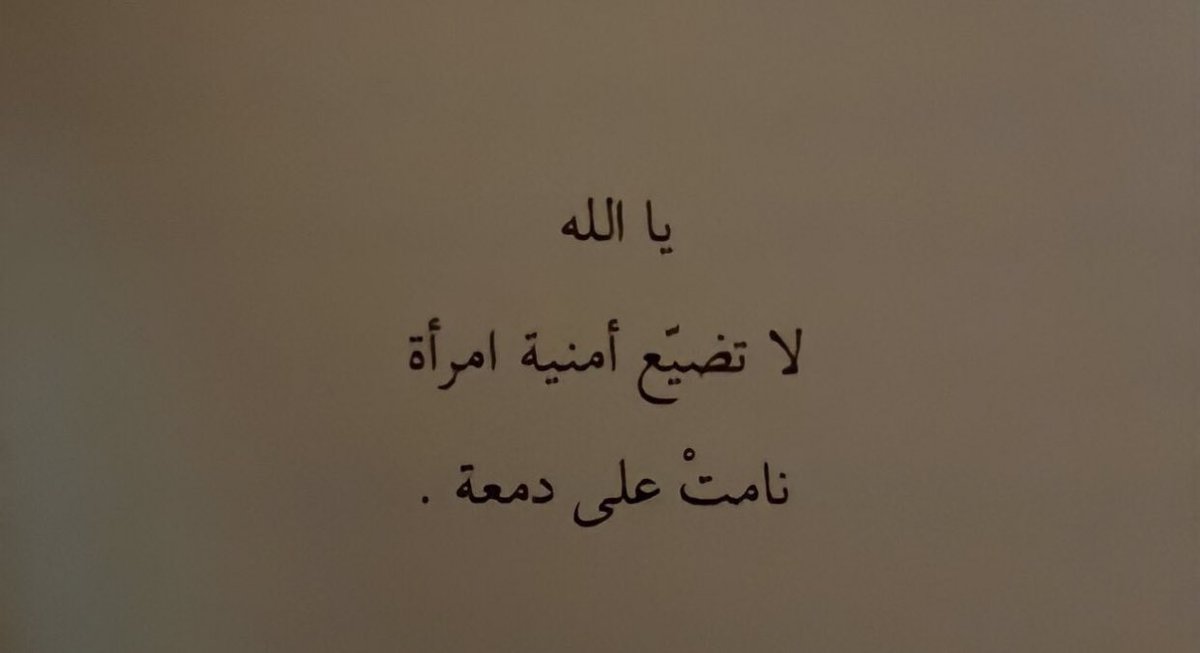 يا الله
لا تضيّع أمنية امرأة
نامتْ على دمعة .